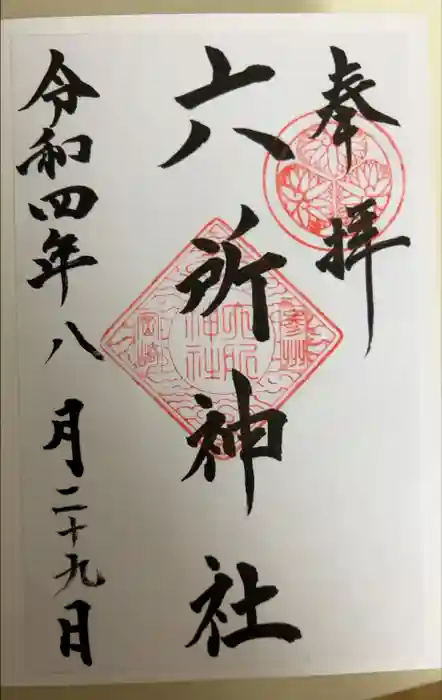 奉拝
六所神社
令和四年八月二十九日
参州
六所神社
岡崎